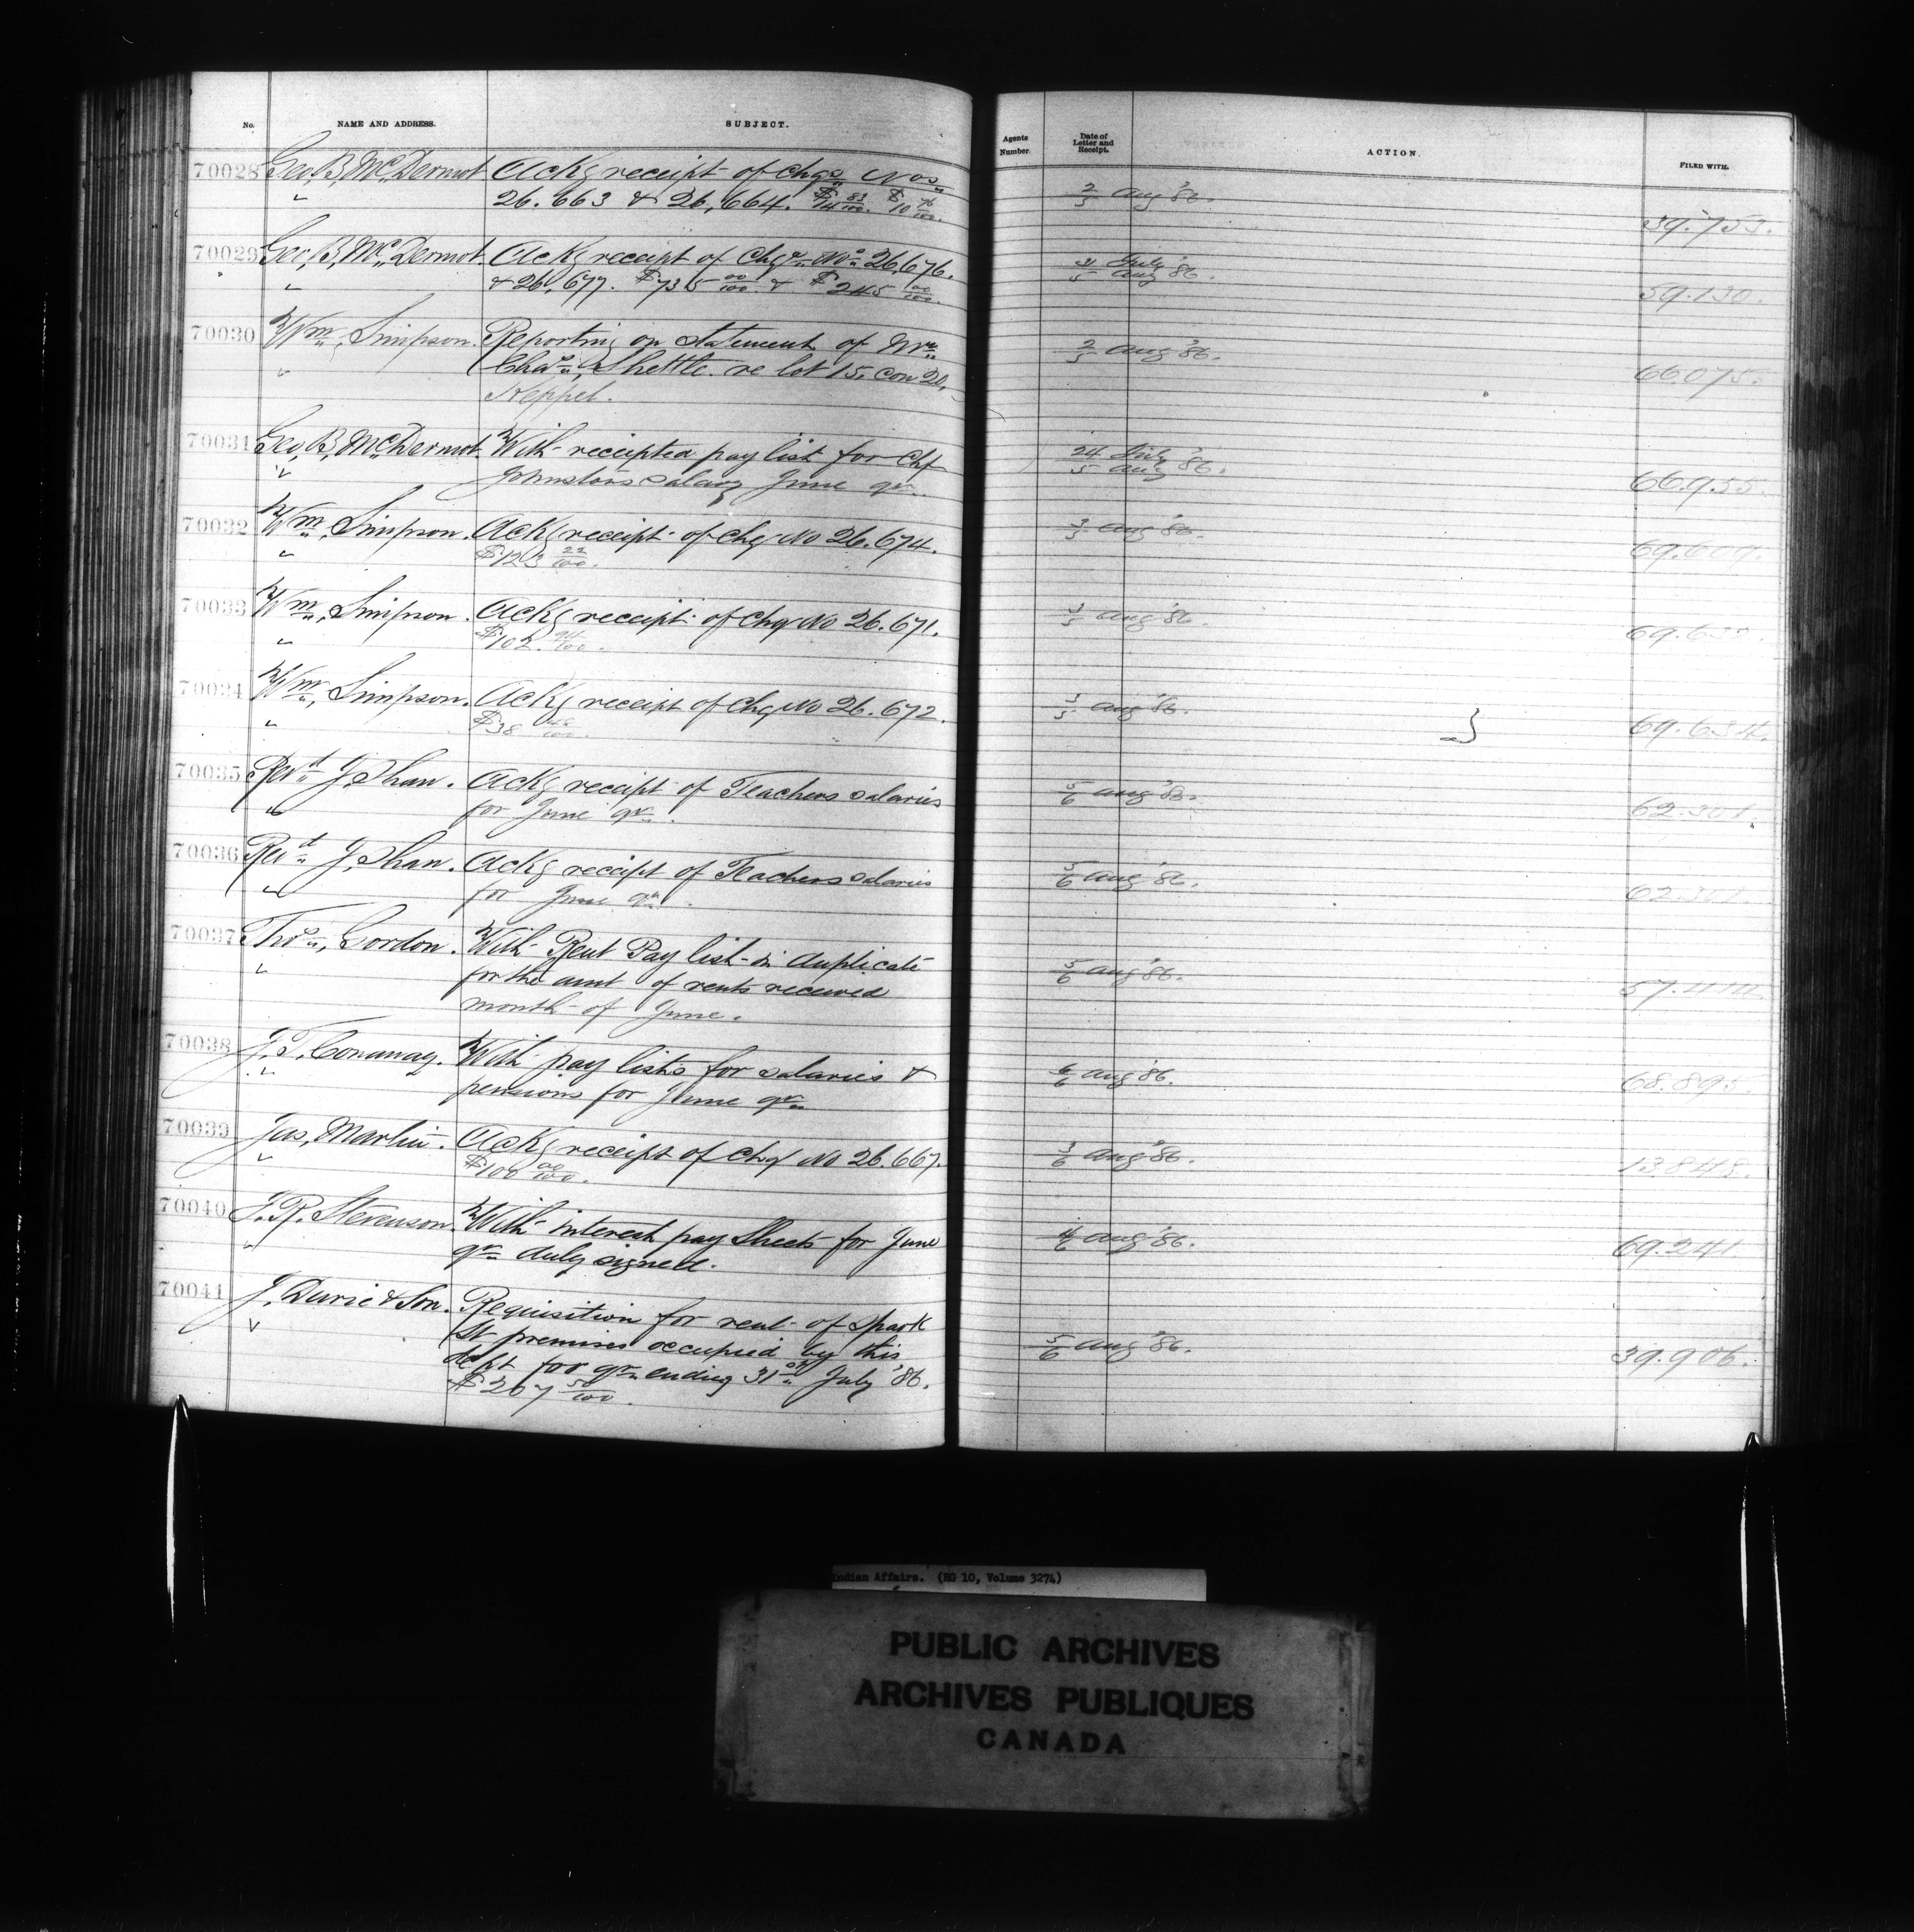 No. NAME AND ADDRESS. SUBJECT.
70028 Geo. B. McDermot Ackg receipt of Chqs Nos
" 26.663 & 26,664. $74 83/100. $10 76/100.
70029 Geo. B. McDermot. Ackg receipt of Chqs Nos 26,676.
" & 26,677. $735 00/100. & $245 00/100.
70030 Wm. Simpson. Reporting on statement of Mrs
" Chas. Shettle re lot 15, con 20,
Keppel.
70031 Geo. B. McDermot With receipted pay list for Chf
" Johnston's salary June qr.
70032 Wm. Simpson. Ackg receipt of Chq No 26.674.
" $123 22/100.
70033 Wm. Simpson. Ackg receipt of Chq No 26.671.
" $102. 94/100.
70034 Wm. Simpson. Ackg receipt of Chq No 26.672.
" $38
70035 Revd J. Shan. Ackg receipt of Teachers salaries
" for June qr.
70036 Revd J. Shan. Ackg receipt of Teachers salaries
" for June qr.
70037 Thos. Gordon. With Rent Pay list in duplicate
" for the amt of rents received
month of June.
70038 J. T. Conaway. With pay lists for salaries &
" pensions for June qr.
70039 Jas. Martin. Ackg receipt of Chq No 26.667.
" $100 00/100.
70040 J. R. Stevenson. With interest pay sheets for June
" qr. duly signed.
70041 J. Durie & Son. Requisition for rent of Spark
" St premises occupied by this
dept for qr. ending 31st July '86.
$207 50/100.
Agents Number. Date of Letter and Receipt. ACTION. FILED WITH.
2/5 Aug '86. 39.753.
31 July / 5 Aug '86. 59.130.
2/5 Aug '86. 66.075.
24 July / 5 Aug '86. 66.955.
3/5 Aug '86. 69.609.
3/5 Aug '86.
3/5 Aug '86. 69.634.
5/6 Aug '86. 62.301.
5/6 Aug '86. 62.301.
5/6 Aug '86.
6/6 Aug '86. 68.895.
3/6 Aug '86. 13.848.
4/6 Aug '86. 69.241
5/6 Aug '86. 39.906.
Indian Affairs. (RG 10, Volume 3274)
PUBLIC ARCHIVES
ARCHIVES PUBLIQUES
CANADA